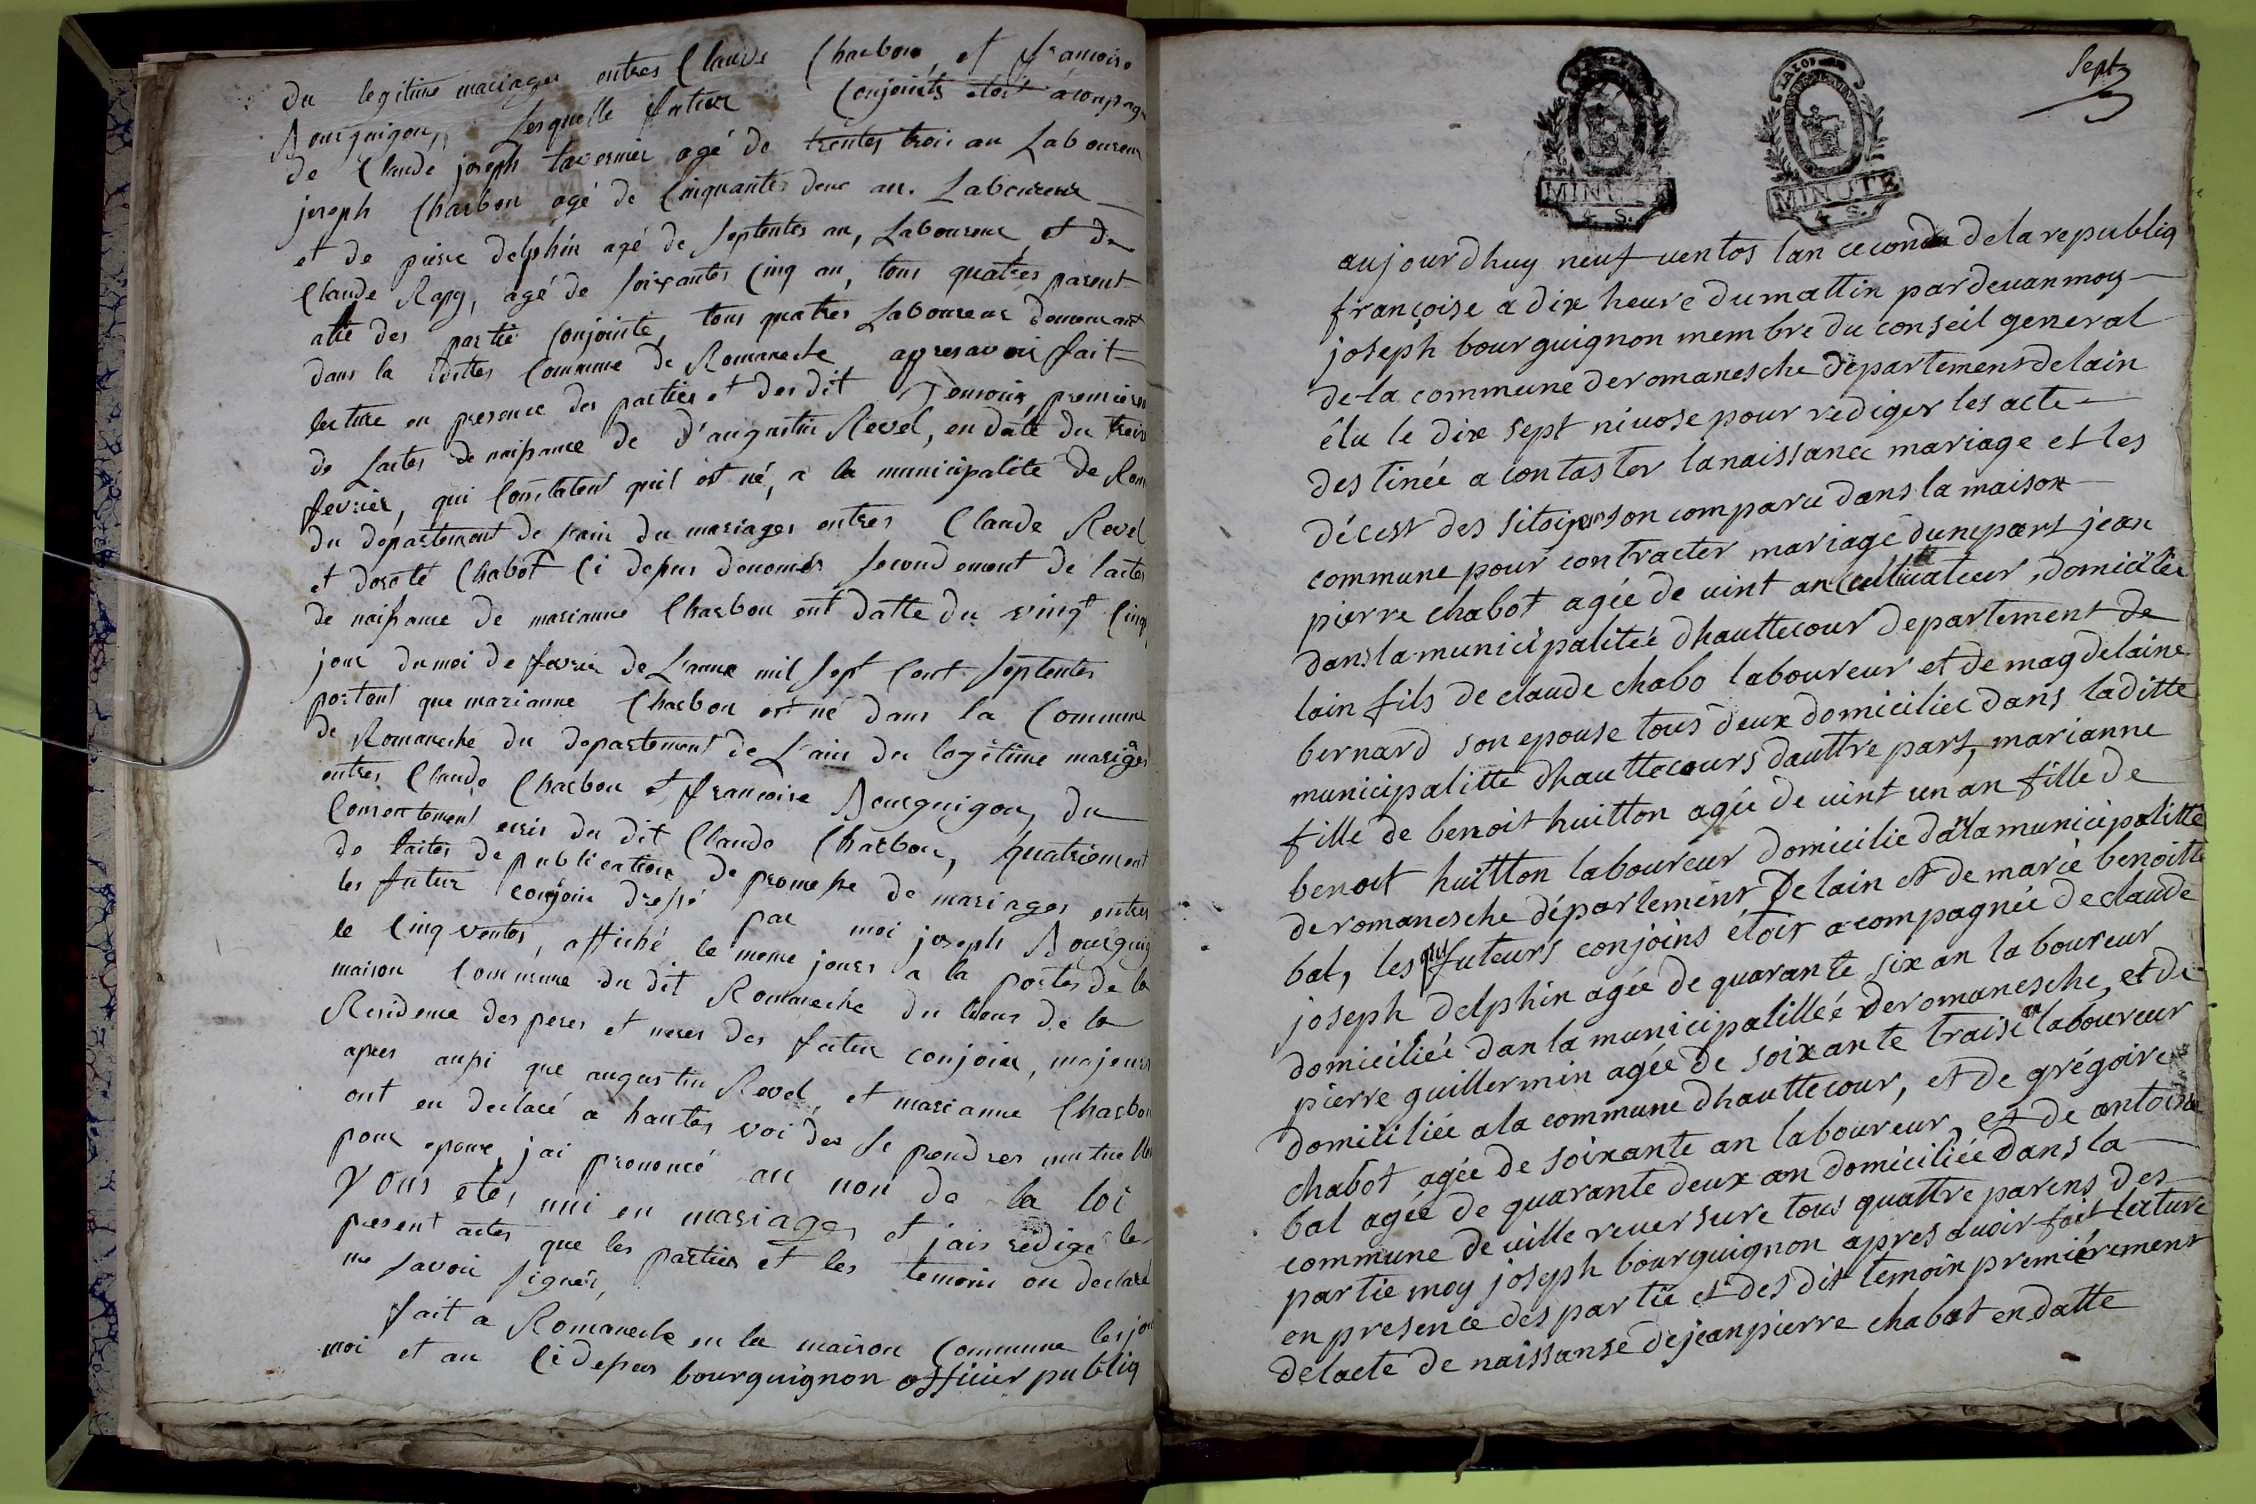 du legitime mariages entres Claude Charbon et francoise
Bourguigon, Lesquelle futur Conjoints etoit acompag
de Claude joseph tavernier agé de trentes trois an Laboureur
joseph Charbon agé de Cinquantes deux an. Laboureur
et de pierre delphin agé de septentes an, Laboureur et de
Claude Rapy, agé de soixantes Cinq an, tous quatres parent
alié des partie conjointe, tous quatres Laboureur demeurant
dans la dittes Commune de Romaneche apres avoir fait
lecture en presence des parties et des dit temoins, premierem
de lactes de naissance de d'augustin Revel, en date du treize
fevrier, qui Constatent quil est né, a la municipalité de Rom
du département de lain du mariages entres Claude Revel
et doroté Chabot Ci depus denomés secondement de lactes
de naissance de marianne Charbon ent datte du vingt Cinq
jour du moi de fevrier de L'anne mil sept Cent septentes
portent que marianne Charbon est né dans la Commune
de Romaneche du departement de L'ain du legetime mariges
entres Claude Charbon et francoise Bourguigon, du
Consentement ecris du dit Claude Charbon, quatriement
de lactes de publication de promesse de mariages entres
les futur conjoin dressé par moi joseph Bourguig
le Cinq ventos, affiché le meme jours a la portes de la
maison Commune du dit Romaneche du lieux de la
Residence des peres et meres des futur conjoin, majeurs
apres aussi que augustin Revel, et marianne Charbon
ont eu declaré a hautes voi des se prendres mutuelle
pour epoux, j'ai prononcé au non de la loi
Vous etes uni en mariages et j'ais redigé le
present actes que les parties et les temoin on declaré
ne savoir signer,
fait a Romaneche en la maison Commune les jour
moi et an Ci depus bourguignon officier publiq
Sept
MINUTE
4 S.
MINUTE
4 S.
aujourdhuy neuf ventos lan ceconde de la republiq
françoise a dix heure du mattin pardevan moy
joseph bourguignon membre du conseil general
de la commune de romanesche département de lain
élu le dix sept nivose pour rediger les acte
destinée a contaster la naissance mariage et les
décest des sitoijen son comparu dans la maison
commune pour contracter mariage dune part jean
pierre chabot agée de vint an cultivateur, domicilie
dans la municipalitée dhauttecour departement de
lain fils de claude chabo laboureur et de magdelaine
bernard son epouse tous deux domiciliée dans laditte
municipalitté dhauttecours dauttre part, marianne
fille de benoit huitton agée de vint un an fille de
benoit huitton laboureur domicilie dan la municipalitté
de romanesche département de lain et de marie benoitte
bal, les quel futeurs conjoins étoit acompagnée de claude
joseph delphin agée de quarante six an laboureur
domiciliée dan la municipalillée de romanesche, et de
pierre guillermin agée de soixante traise an laboureur
domiciliée a la commune dhauttecour, et de grégoire
chabot agée de soixante an laboureur, et de antoine
bal agée de quarante deux an domiciliée dans la
commune de ville reversure tous quattre parens des
partie moy joseph bourguignon apres avoir fait lecture
en presence des partie et des dit temoin premiérement
de lacte de naissanse de jean pierre chabot en datte